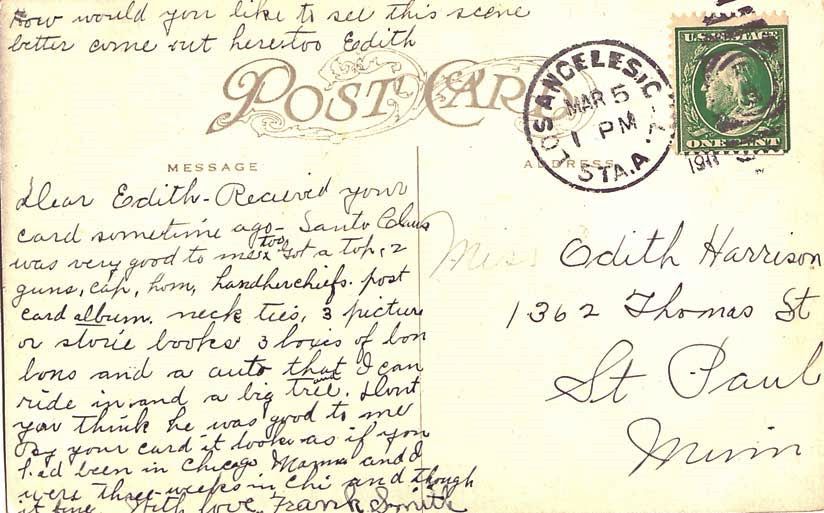 How would you like to see this scene
better come out here too Edith
POST CARD
MESSAGE
ADDRESS
LOS ANGELES, C
MAR 5
1 PM
STA. A
1911
U.S. POSTAGE
ONE CENT
Dear Edith - Recieved your
card sometime ago - Santo Claus
was very good to me too Got a top, 2
guns, cap, horn, handkerchiefs. post
card album. neck ties, 3 picture
or storie books 3 boxes of bon
bons and a auto that I can
ride in and a big tree. and Dont
you think he was good to me
By your card it looks as if you
had been in Chicago Mamma and I
were three-weeks in Chi and though
it fine. With love Frank Smith
Miss Edith Harrison
1362 Thomas St
St Paul
Minn